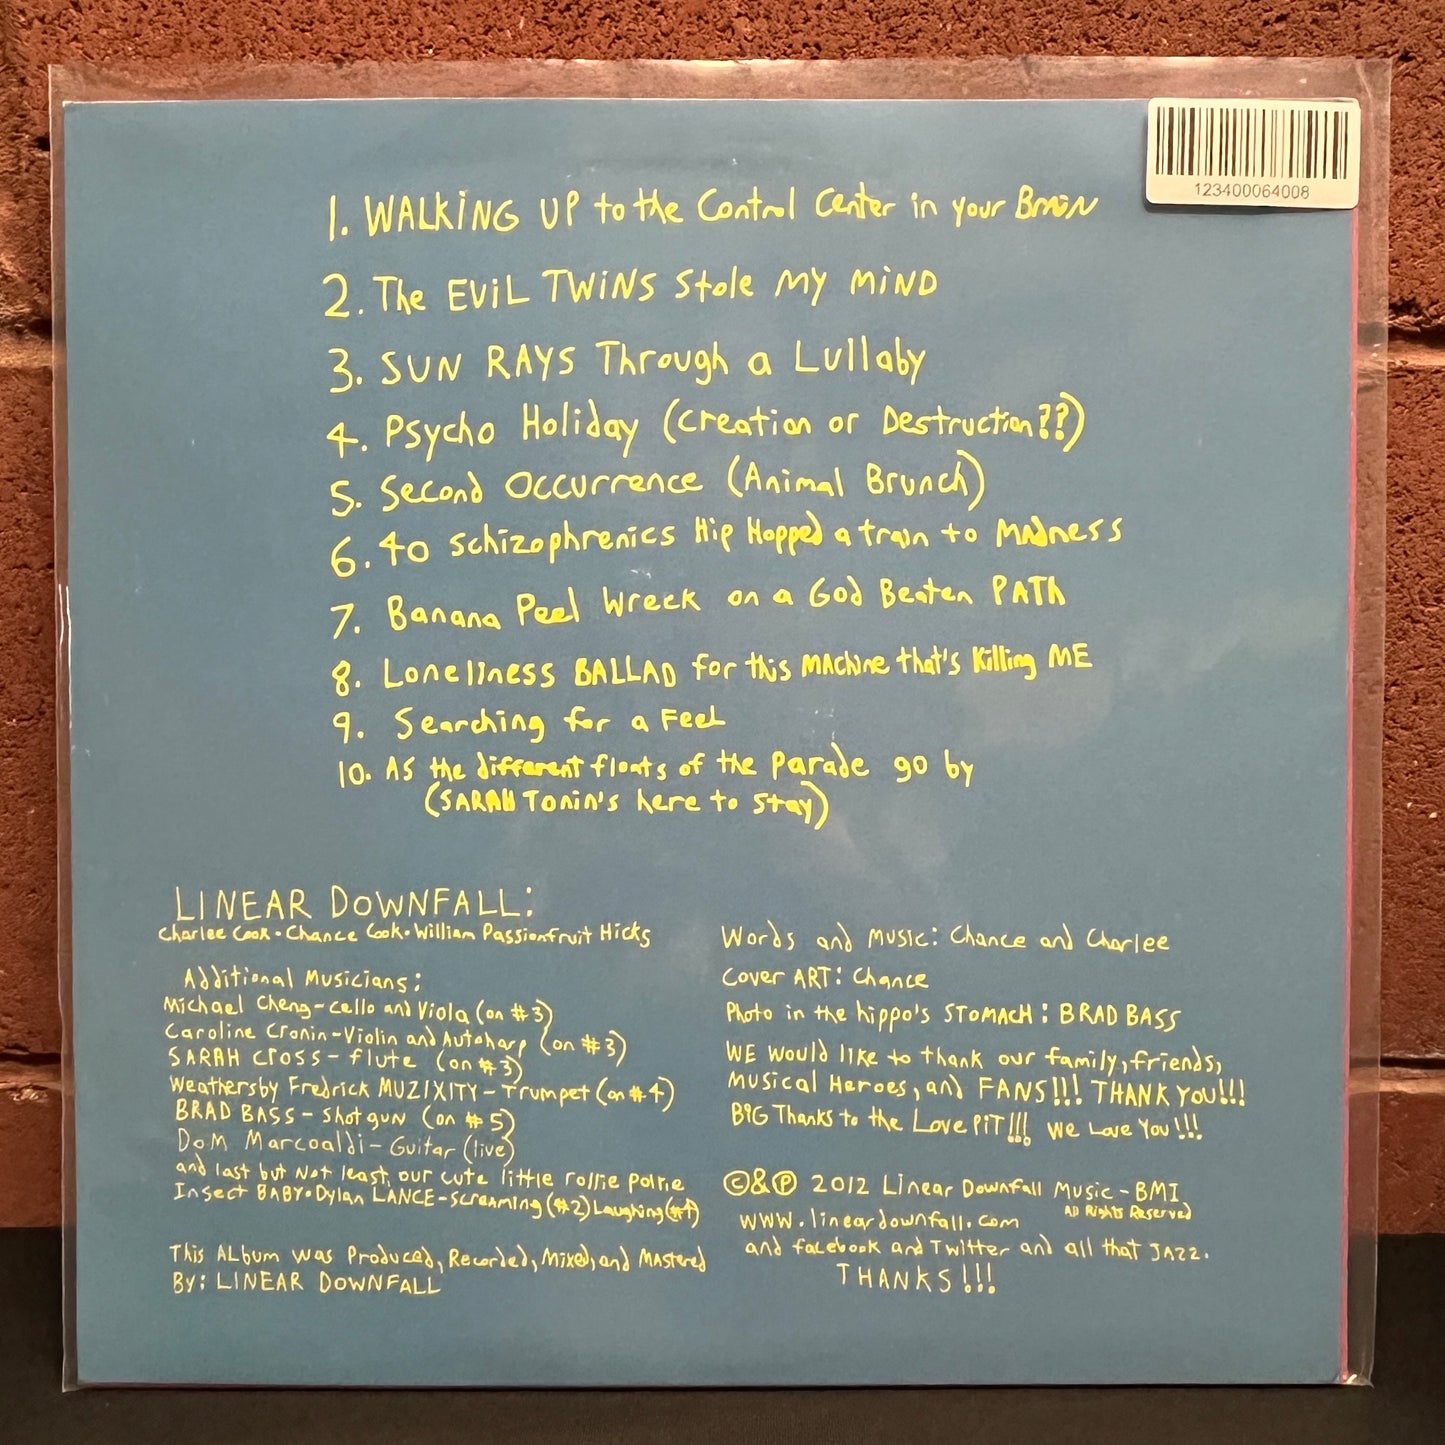 123400064008
1. WALKING UP to the Control Center in your Brain
2. The EVIL TWINS Stole MY MIND
3. SUN RAYS Through a Lullaby
4. Psycho Holiday (Creation or Destruction??)
5. Second Occurrence (Animal Brunch)
6. 40 Schizophrenics Hip Hopped a train to Madness
7. Banana Peel Wreck on a God Beaten PATh
8. Loneliness BALLAD for this MAChine that's Killing ME
9. Searching for a Feel
10. As the different floats of the Parade go by
(SARAH Tonin's here to Stay)
LINEAR DOWNFALL:
Charlee Cook • Chance Cook • William Passionfruit Hicks
Additional Musicians:
Michael Cheng - Cello and Viola (on #3)
Caroline Cronin - Violin and Autoharp (on #3)
SARAH CROSS - flute (on #3)
Weathersby Fredrick MUZIXITY - Trumpet (on #4)
BRAD BASS - Shotgun (on #5)
DOM Marcoaldi - Guitar (live)
and last but Not least, our cute little rollie polie
Insect BABY • Dylan LANCE - Screaming (#2) Laughing (#4)
This Album was Produced, Recorded, Mixed, and Mastered
BY: LINEAR DOWNFALL
Words and Music: Chance and Charlee
Cover ART: Chance
Photo in the hippo's STOMACH: BRAD BASS
WE Would like to thank our family, friends,
Musical Heroes, and FANS!!! THANK YOU!!!
BIG Thanks to the Love PIT!!! We Love You!!!
©&℗ 2012 Linear Downfall Music - BMI
All Rights Reserved
WWW.lineardownfall.com
and facebook and Twitter and all that JAZZ.
THANKS!!!